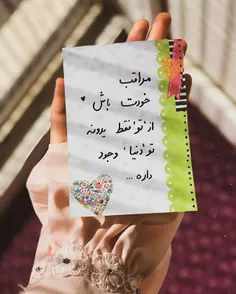 مراقب
خودت باش ♥
از 'تو' فقط یدونه
تو 'دنیا' وجود
داره ...